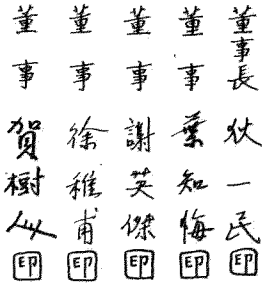 董事長 狄一民 印
董事 葉知侮 印
董事 謝英傑 印
董事 徐稚甫 印
董事 賀樹人 印